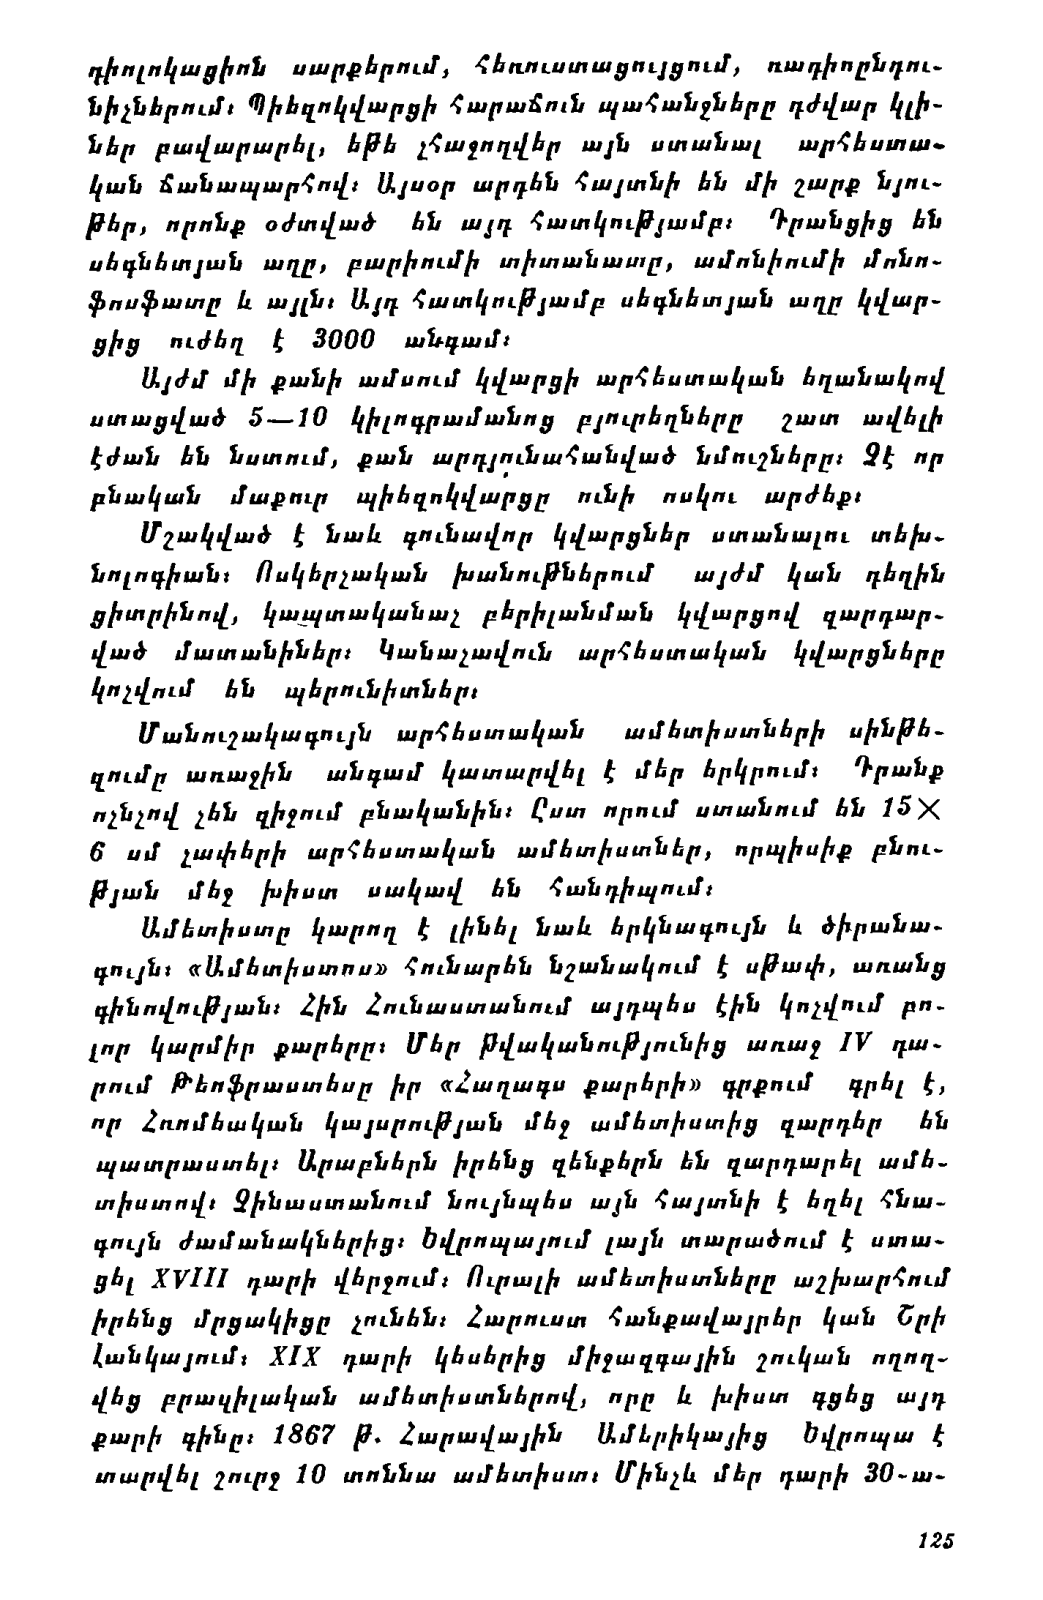 դիոլոկացիոն սարքերում, հեռուստացույցում, ռադիոընդու-
նիչներում։ Պիեզոկվարցի հարաճուն պահանջները դժվար կլի-
ներ բավարարել, եթե չհաջողվեր այն ստանալ արհեստա-
կան ճանապարհով։ Այսօր արդեն հայտնի են մի շարք նյու-
թեր, որոնք օժտված են այդ հատկությամբ։ Դրանցից են
սեգնետյան աղը, բարիումի տիտանատը, ամոնիումի մոնո-
ֆոսֆատը և այլն։ Այդ հատկությամբ սեգնետյան աղը կվար-
ցից ուժեղ է 3000 անգամ։
Այժմ մի քանի ամսում կվարցի արհեստական եղանակով
ստացված 5—10 կիլոգրամանոց բյուրեղները շատ ավելի
էժան են նստում, քան արդյունահանված նմուշները։ Չէ որ
բնական մաքուր պիեզոկվարցը ունի ոսկու արժեք։
Մշակված է նաև գունավոր կվարցներ ստանալու տեխ-
նոլոգիան։ Ոսկերչական խանութներում այժմ կան դեղին
ցիտրինով, կապտականաչ բերիլանման կվարցով զարդար-
ված մատանիներ։ Կանաչավուն արհեստական կվարցները
կոչվում են պերունիտներ։
Մանուշակագույն արհեստական ամետիստների սինթե-
զումը առաջին անգամ կատարվել է մեր երկրում։ Դրանք
ոչնչով չեն զիջում բնականին։ Ըստ որում ստանում են 15×
6 սմ չափերի արհեստական ամետիստներ, որպիսիք բնու-
թյան մեջ խիստ սակավ են հանդիպում։
Ամետիստը կարող է լինել նաև երկնագույն և ծիրանա-
գույն։ «Ամետիստոս» հունարեն նշանակում է սթափ, առանց
գինովության։ Հին Հունաստանում այդպես էին կոչվում բո-
լոր կարմիր քարերը։ Մեր թվականությունից առաջ IV դա-
րում Թեոֆրաստեսը իր «Հաղագս քարերի» գրքում գրել է,
որ Հռոմեական կայսրության մեջ ամետիստից զարդեր են
պատրաստել։ Արաբներն իրենց զենքերն են զարդարել ամե-
տիստով։ Չինաստանում նույնպես այն հայտնի է եղել հնա-
գույն ժամանակներից։ Եվրոպայում լայն տարածում է ստա-
ցել XVIII դարի վերջում։ Ուրալի ամետիստները աշխարհում
իրենց մրցակիցը չունեն։ Հարուստ հանքավայրեր կան Շրի
Լանկայում։ XIX դարի կեսերից միջազգային շուկան ողող-
վեց բրազիլական ամետիստներով, որը և խիստ գցեց այդ
քարի գինը։ 1867 թ. Հարավային Ամերիկայից Եվրոպա է
տարվել շուրջ 10 տոննա ամետիստ։ Մինչև մեր դարի 30-ա-
125